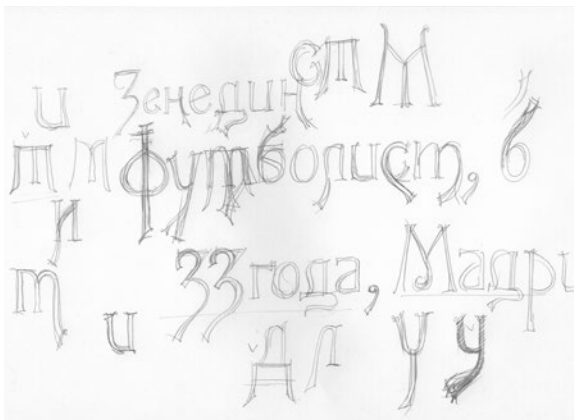 и Зенедин ст М
т т футболист, б
и
т 33 года, Мадри
и Д л у у